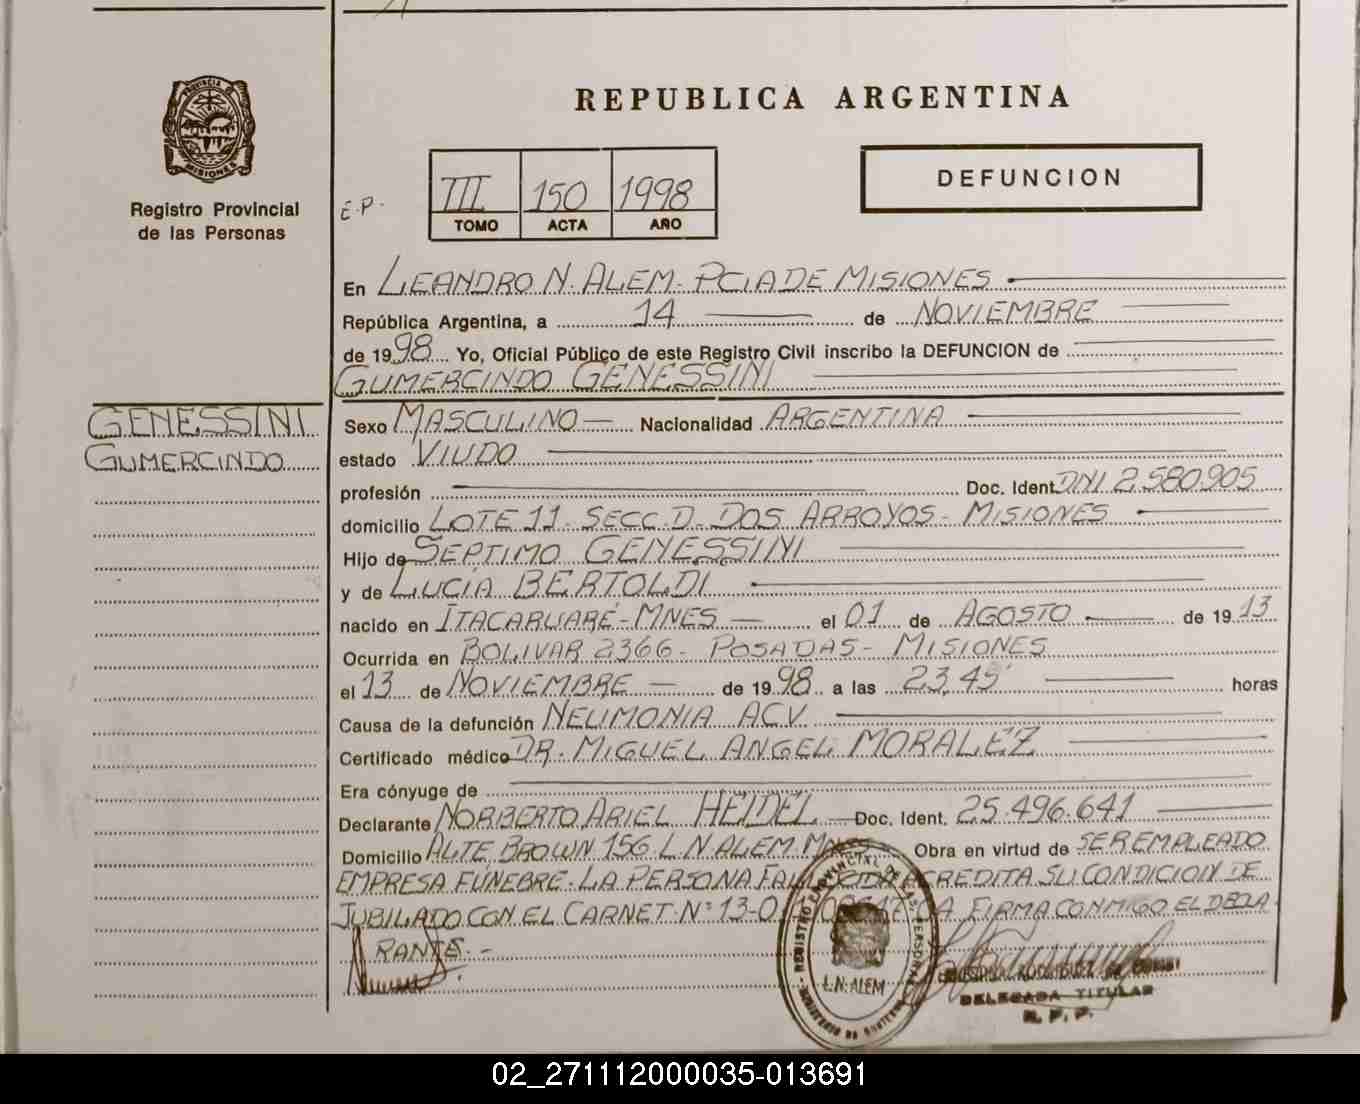 PROVINCIA DE
MISIONES
Registro Provincial
de las Personas
REPUBLICA ARGENTINA
DEFUNCION
E.P.
III 150 1998
TOMO ACTA AÑO
En LEANDRO N. ALEM. PCIA DE MISIONES
República Argentina, a 14 de NOVIEMBRE
de 1998 Yo, Oficial Público de este Registro Civil inscribo la DEFUNCION de
GUMERCINDO GENESSINI
GENESSINI
GUMERCINDO
Sexo MASCULINO Nacionalidad ARGENTINA
estado VIUDO
profesión Doc. Ident. DNI 2.580.905
domicilio LOTE 11. SECC. D. DOS ARROYOS - MISIONES
Hijo de SEPTIMO GENESSINI
y de LUCÍA BERTOLDI
nacido en ITACARUARÉ - MNES el 01 de AGOSTO de 1913
Ocurrida en BOLIVAR 2366 - POSADAS - MISIONES
el 13 de NOVIEMBRE de 1998 a las 23,45 horas
Causa de la defunción NEUMONIA ACV
Certificado médico DR. MIGUEL ANGEL MORALEZ
Era cónyuge de
Declarante NORBERTO ARIEL HEIDEL Doc. Ident. 25.496.641
Domicilio ALTE BROWN 156 L N ALEM. MNES Obra en virtud de SER EMPLEADO
EMPRESA FÚNEBRE. LA PERSONA FALLECIDA ACREDITA SU CONDICION DE
JUBILADO CON EL CARNET Nº 13-0 FIRMA CONMIGO EL DECLA
RANTE.-
REGISTRO PROVINCIAL DE LAS PERSONAS
L.N. ALEM
MINISTERIO DE GOBIERNO
DELEGADA TITULAR
R. P. P.
02_271112000035-013691